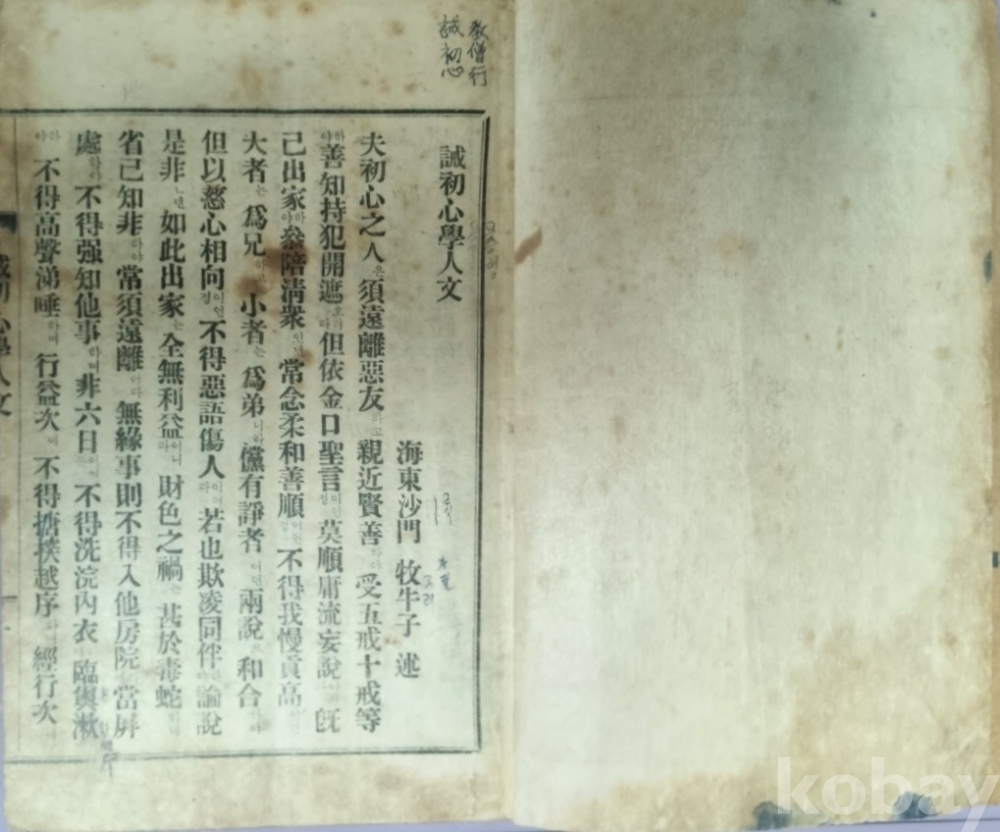 教僧行
誡初心
誡初心學人文
海東沙門 牧牛子 述
夫初心之人은 須遠離惡友하고 親近賢善하야 受五戒十戒等
하야 善知持犯開遮호리라 但依金口聖言이언정 莫順庸流妄說 旣
己出家하야 叅陪淸衆인댄 常念柔和善順이언정 不得我慢貢高
大者는 爲兄하고 小者는 爲弟니라 儻有諍者어던 兩說로 和合하야
但以慈心相向이언정 不得惡語傷人이어다 若也欺凌同伴 論說
是非ㄴ댄 如此出家는 全無利益이니라 財色之禍는 甚於毒蛇
省己知非하야 常須遠離어다 無緣事則不得入他房院 當屛
處하야 不得强知他事하며 非六日이어던 不得洗浣內衣하며 臨盥漱
하야 不得高聲涕唾하며 行益次에 不得搪揬越序하며 經行次
誡初心學人文 一
kobay